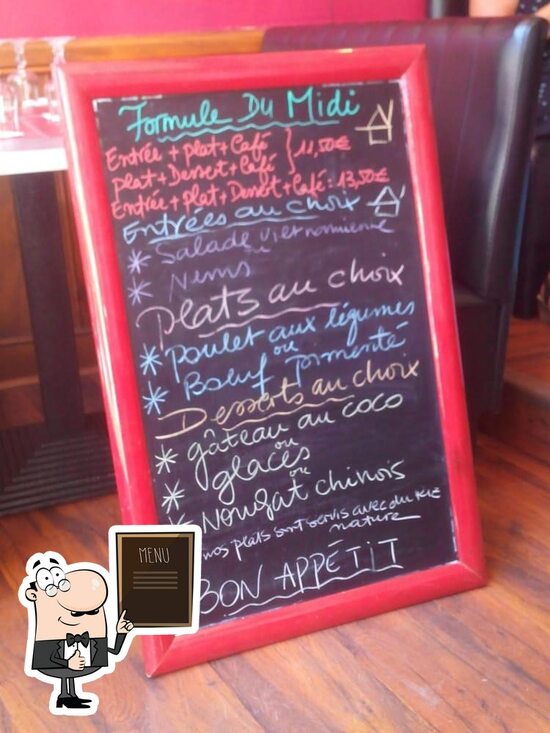 Formule Du Midi
Entrée + plat + Café
plat + Dessert + Café } 11,50€
Entrée + plat + Dessert + Café : 13,50€
Entrées au choix
* Salade vietnamienne
ou
* Nems
Plats au choix
* poulet aux légumes
ou
* Bœuf pimenté
Desserts au choix
* gâteau au coco
ou
* glaces
ou
* Nougat chinois
nos plats sont servis avec du RIZ
nature
BON APPÉTIT
MENU